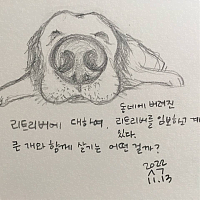 동네에 버려진
리트리버에 대하여, 리트리버를 임보하고 계
있다.
큰 개와 함께 살기는 어떤 걸까?
2022
11.13